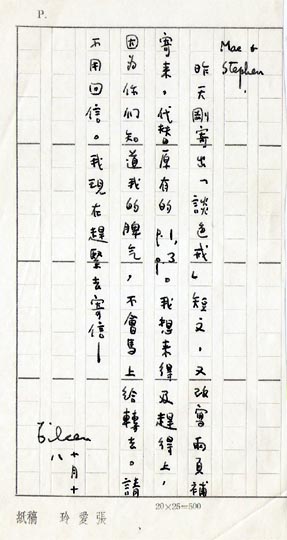 P.
Mae &
Stephen,
昨天剛寄出「談色戒」短文,又改寫兩頁補
寄來,代替原有的p.1, p.3。我想來得及趕得上,
因为你们知道我的脾气,不會馬上給轉去。請
不用回信。我現在趕緊去寄信—
Eileen
十月十八
張愛玲 稿紙
20×25=500